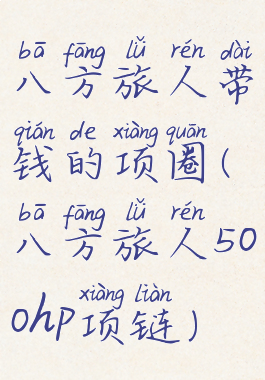 bā fāng lǚ rén dài
八方旅人带
qián de xiàng quān
钱的项圈(
bā fāng lǚ rén
八方旅人50
xiàng liàn
0hp项链)